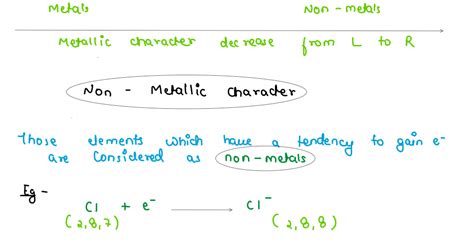 Metals Non-metals
Metallic character decrease from L to R
Non - Metallic Character
Those elements which have a tendency to gain e⁻
are Considered as non-metals
Eg -
Cl + e⁻ ⟶ Cl⁻
(2,8,7) (2,8,8)